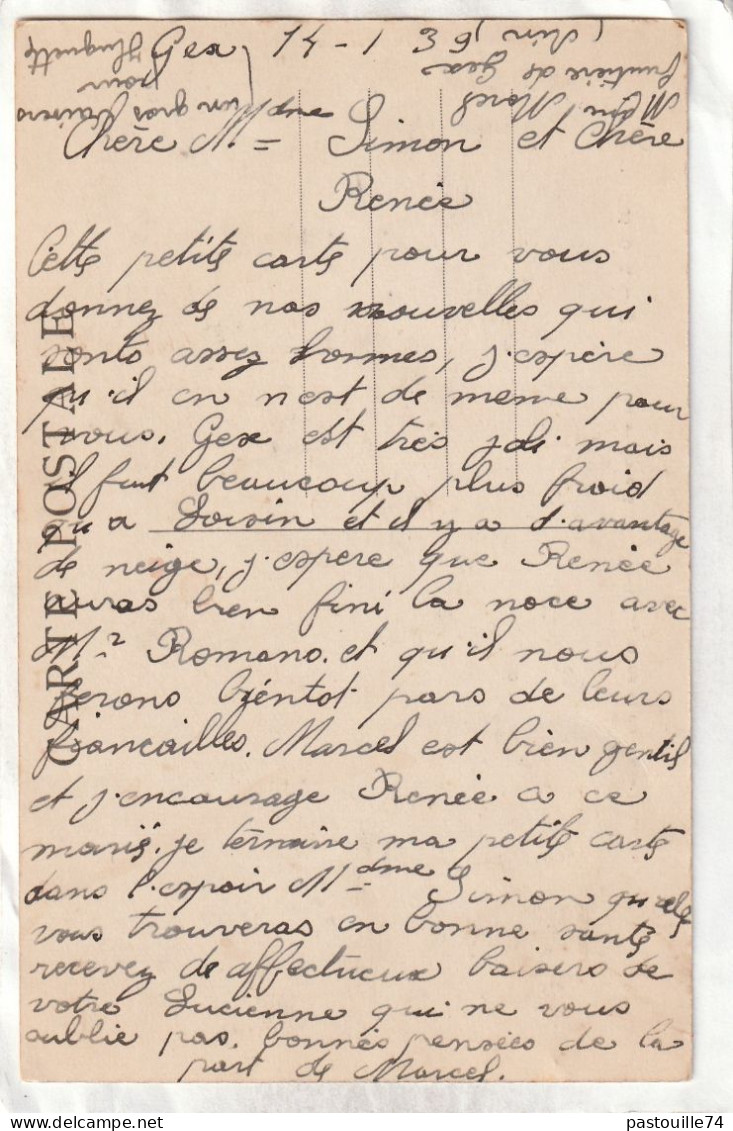 Gex 14-1 39
Chère Mdme Simon et Chère
Renée
Cette petite carte pour vous
donnez de nos nouvelles qui
sonts assez bonnes, j'espère
qu'il en n'est de meme pour
vous. Gex est très joli mais
il fait beaucoup plus froid
qu'a Loisin et il y a d'avantage
de neige, j'espere que Renée
auras bien fini la noce avec
Mr Romano. et qu'il nous
ferons bientot pars de leurs
fiancailles. Marcel est bien gentil
et j'encourage Renée a ce
marié. je termine ma petite carte
dans l'espoir Mdme Simon qu'elle
vous trouveras en bonne santé
recevez de affectueux baisers de
votre Lucienne qui ne vous
oublie pas. bonnes pensées de la
part de Marcel.
un gros baisers
pour
Huguette
Morel
fruitière de Gex
(Ain)
CARTE POSTALE
pastouille74